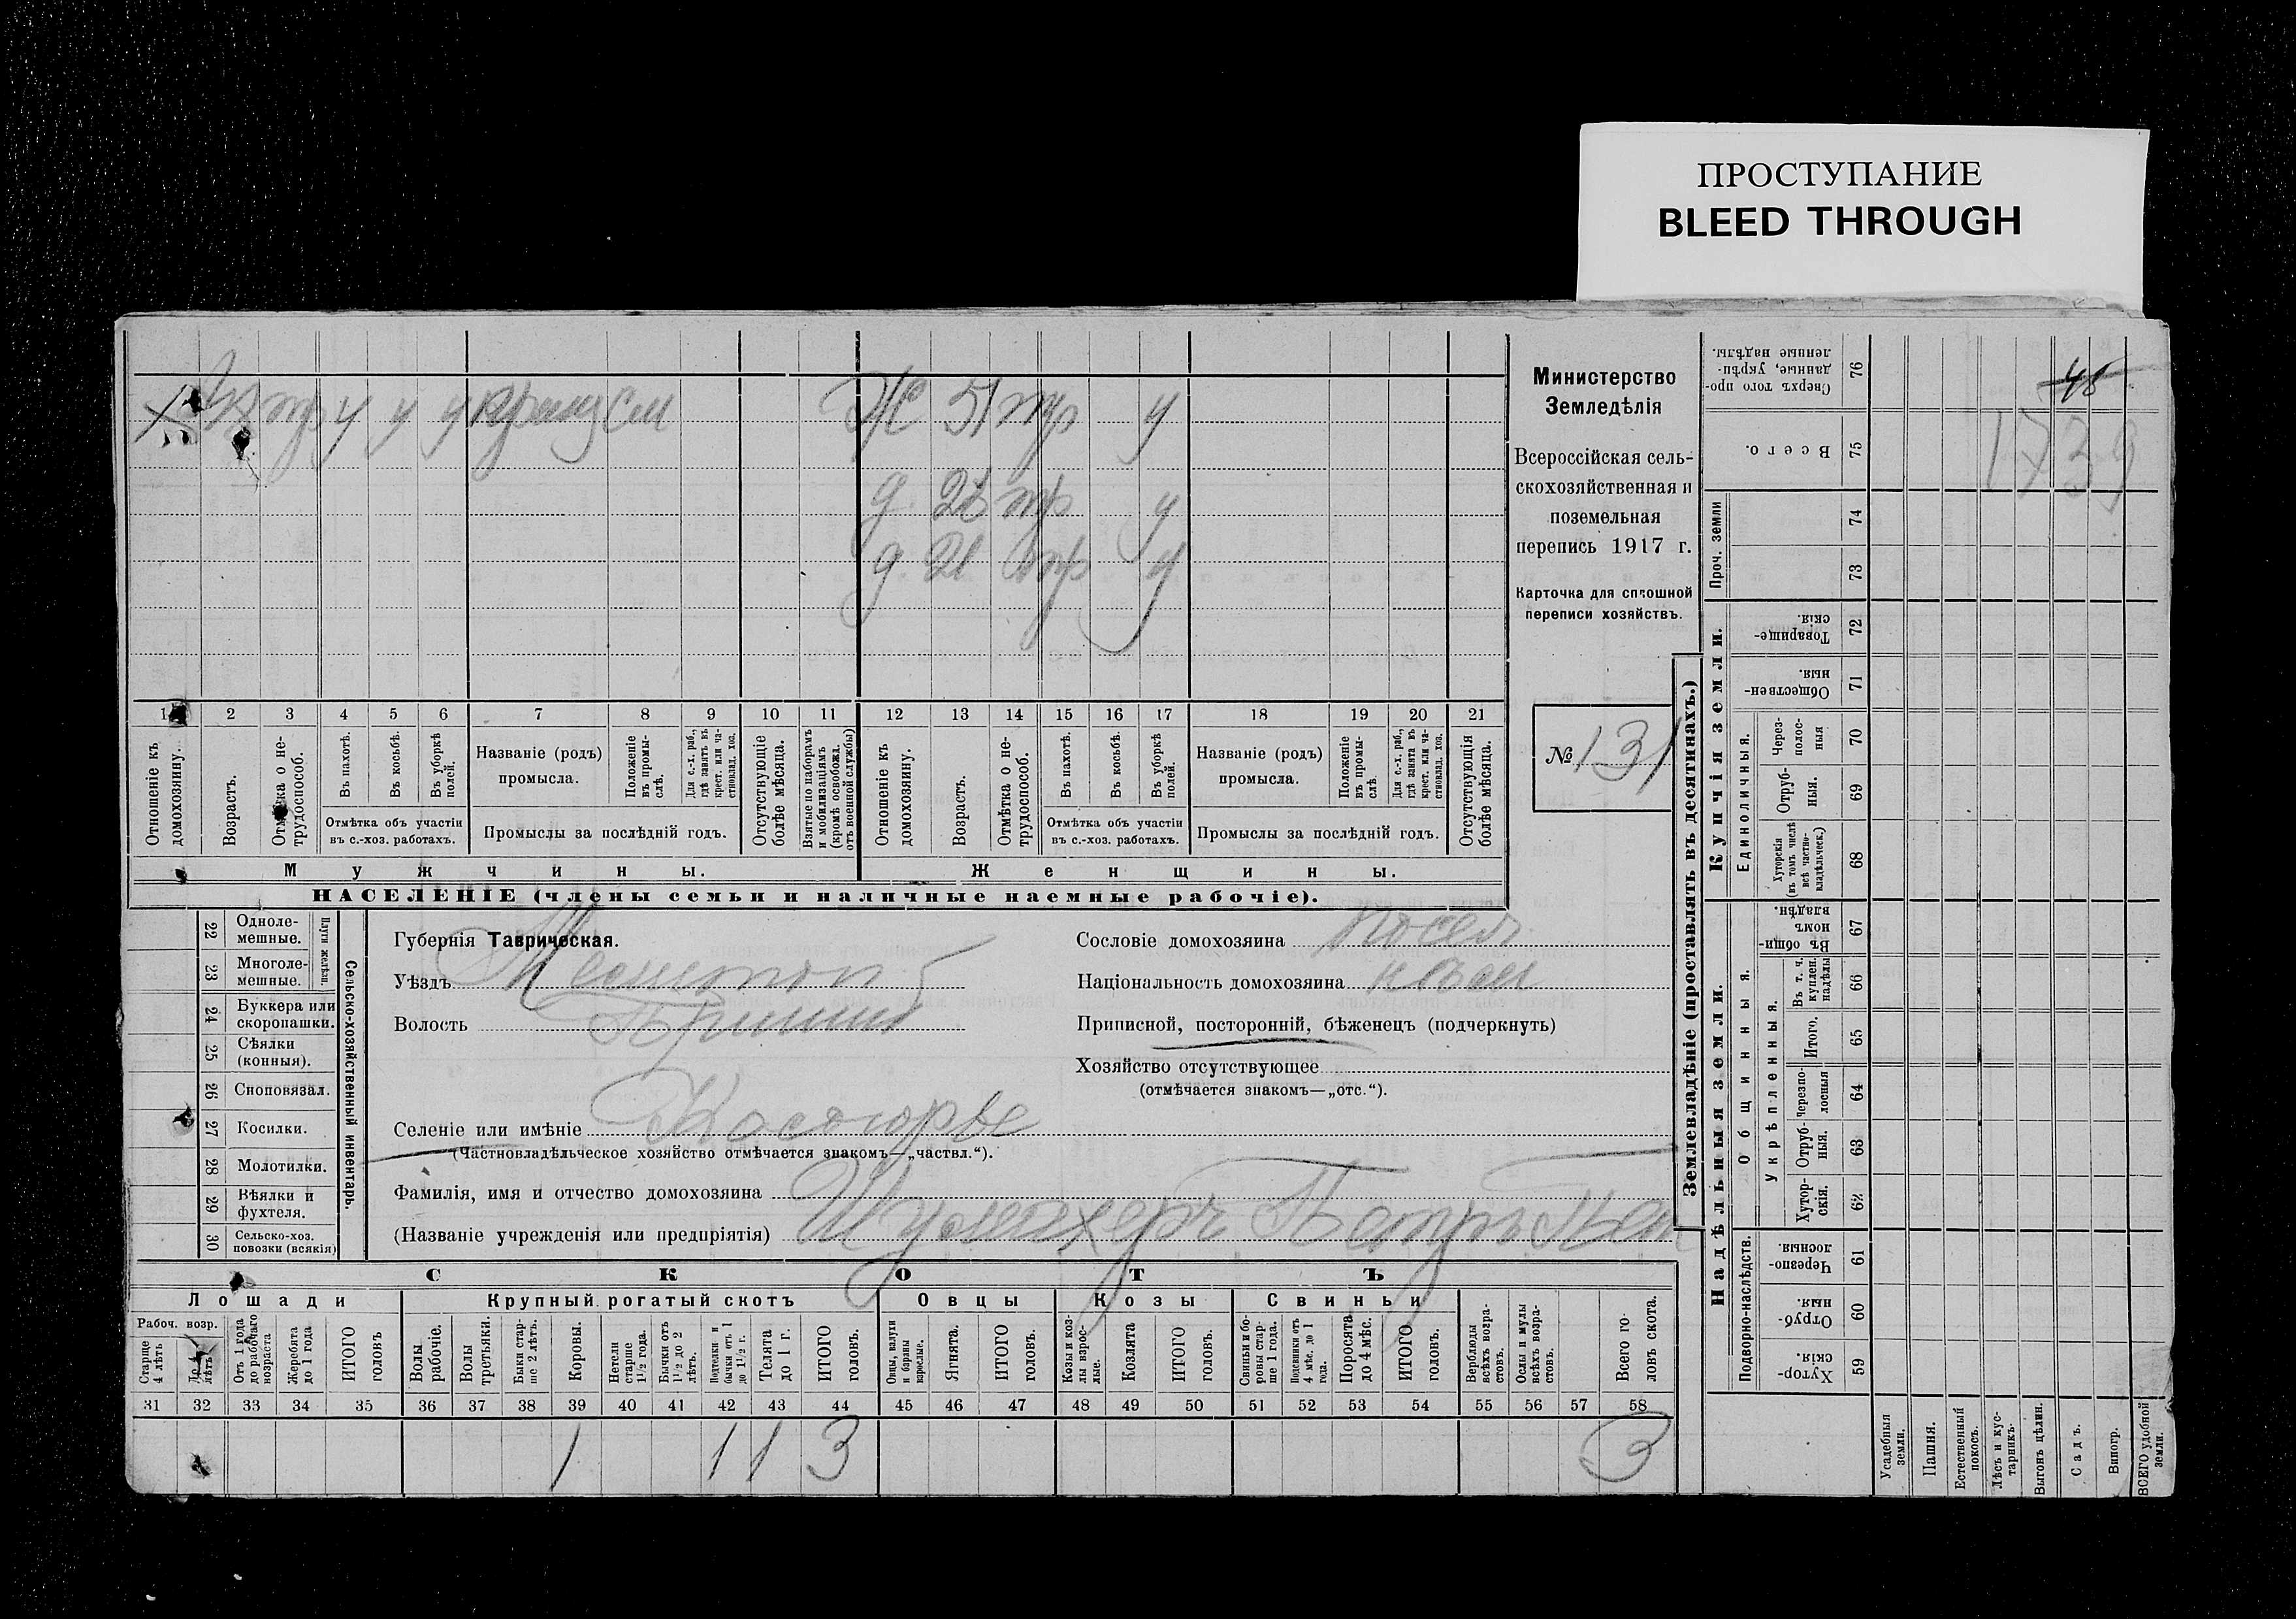 ПРОСТУПАНИЕ
BLEED THROUGH
Х тр у у у см
Ж 51 тр у
д 26 тр у
д 21 тр у
1 2 3 4 5 6 7 8 9 10 11 12 13 14 15 16 17 18 19 20 21
Отношеніе къ домохозяину.
Возрастъ.
Отмѣтка о не-трудоспособ.
Въ пахотѣ.
Въ косьбѣ.
Въ уборкѣ полей.
Отмѣтка объ участіи
въ с.-хоз. работахъ.
Названіе (родъ)
промысла.
Положеніе въ промы-слѣ.
Для с.-х. раб., гдѣ занятъ въ крест. или ча-стновлад. хоз.
Промыслы за послѣдній годъ.
Отсутствующіе болѣе мѣсяца.
Взятые по наборамъ и мобилизаціямъ (кромѣ освобожд. отъ военной службы)
Отношеніе къ домохозяину.
Возрастъ.
Отмѣтка о не-трудоспособ.
Въ пахотѣ.
Въ косьбѣ.
Въ уборкѣ полей.
Отмѣтка объ участіи
въ с.-хоз. работахъ.
Названіе (родъ)
промысла.
Положеніе въ промы-слѣ.
Для с.-х. раб., гдѣ занята въ крест. или ча-стновлад. хоз.
Промыслы за послѣдній годъ.
Отсутствующія болѣе мѣсяца.
Мужчины.
Женщины.
НАСЕЛЕНІЕ (члены семьи и наличные наемные рабочіе).
Министерство
Земледѣлія
Всероссійская сель-
скохозяйственная и
поземельная
перепись 1917 г.
Карточка для сплошной
переписи хозяйствъ.
№ 131
22 Одноле-мешные.
23 Многоле-мешные.
Плуги желѣзн.
24 Буккера или скоропашки.
25 Сѣялки (конныя).
26 Сноповязал.
27 Косилки.
28 Молотилки.
29 Вѣялки и фухтеля.
30 Сельско-хоз. повозки (всякія)
Сельско-хозяйственный инвентарь.
Губернія Таврическая.
Уѣздъ Мелитоп
Волость Пришиб
Селеніе или имѣніе Косогорье
(Частновладѣльческое хозяйство отмѣчается знакомъ—„частвл.“).
Фамилія, имя и отчество домохозяина
(Названіе учрежденія или предпріятія) Шумахеръ Петръ Пет
Сословіе домохозяина посел
Національность домохозяина нѣм
Приписной, посторонній, бѣженецъ (подчеркнуть)
Хозяйство отсутствующее
(отмѣчается знакомъ—„отс.“).
СКОТЪ
Лошади
Крупный рогатый скотъ
Овцы
Козы
Свиньи
Рабоч. возр.
Старше 4 лѣтъ
До 4 лѣтъ
Отъ 1 года до рабочаго возраста
Жеребята до 1 года
ИТОГО головъ
Волы рабочіе.
Волы третьяки.
Быки стар-ше 2 лѣтъ.
Коровы.
Нетели старше 1½ года.
Бычки отъ 1½ до 2 лѣтъ.
Подтелки и бычки отъ 1 до 1½ г.
Телята до 1 г.
ИТОГО головъ.
Овцы, валухи и бараны взрослые.
Ягнята.
ИТОГО головъ.
Козы и коз-лы взрос-лые.
Козлята
ИТОГО головъ.
Свиньи и бо-ровы стар-ше 1 года.
Подсвинки отъ 4 мѣс. до 1 года.
Поросята до 4 мѣс.
ИТОГО головъ.
Верблюды всѣхъ возра-стовъ.
Ослы и мулы всѣхъ возра-стовъ.
Всего го-ловъ скота.
31 32 33 34 35 36 37 38 39 40 41 42 43 44 45 46 47 48 49 50 51 52 53 54 55 56 57 58
1 1 1 3 3
Землевладѣніе (проставлять въ десятинахъ.)
Сверхъ того про-данные, укрѣп-ленные надѣлы. 76
48
Всего. 75
1739
Проч. земли 74 73
Купчія земли.
Товарище-скія. 72
Обществен-ныя. 71
Единоличныя.
Через-полос-ныя 70
Отруб-ныя. 69
Хуторскія (въ томъ числѣ всѣ частно-владѣльческ.) 68
Надѣльныя земли.
Общинныя.
Въ общин-номъ владѣн. 67
Укрѣпленныя.
Въ т. ч. куплен. надѣлы 66
Итого. 65
Черезпо-лосныя 64
Отруб-ныя. 63
Хутор-скія. 62
Подворно-наслѣдств.
Черезпо-лосныя. 61
Отруб-ныя. 60
Хутор-скія. 59
Усадебныя земли.
Пашня.
Естественный покосъ.
Лѣсъ и кус-тарникъ.
Выгонъ цѣлин.
Садъ.
Виногр.
ВСЕГО удобной земли.